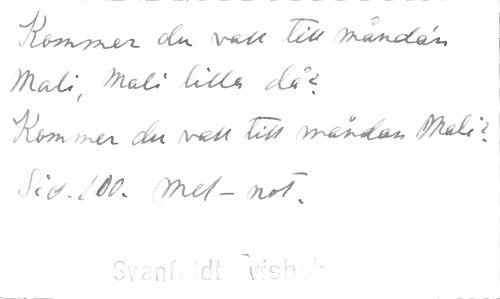 Kommer du vall till måndán
Mali, Mali lilla då?
Kommer du vall till måndan Mali?
Sid. 100. Mel-not.
Svanfeldt visbok